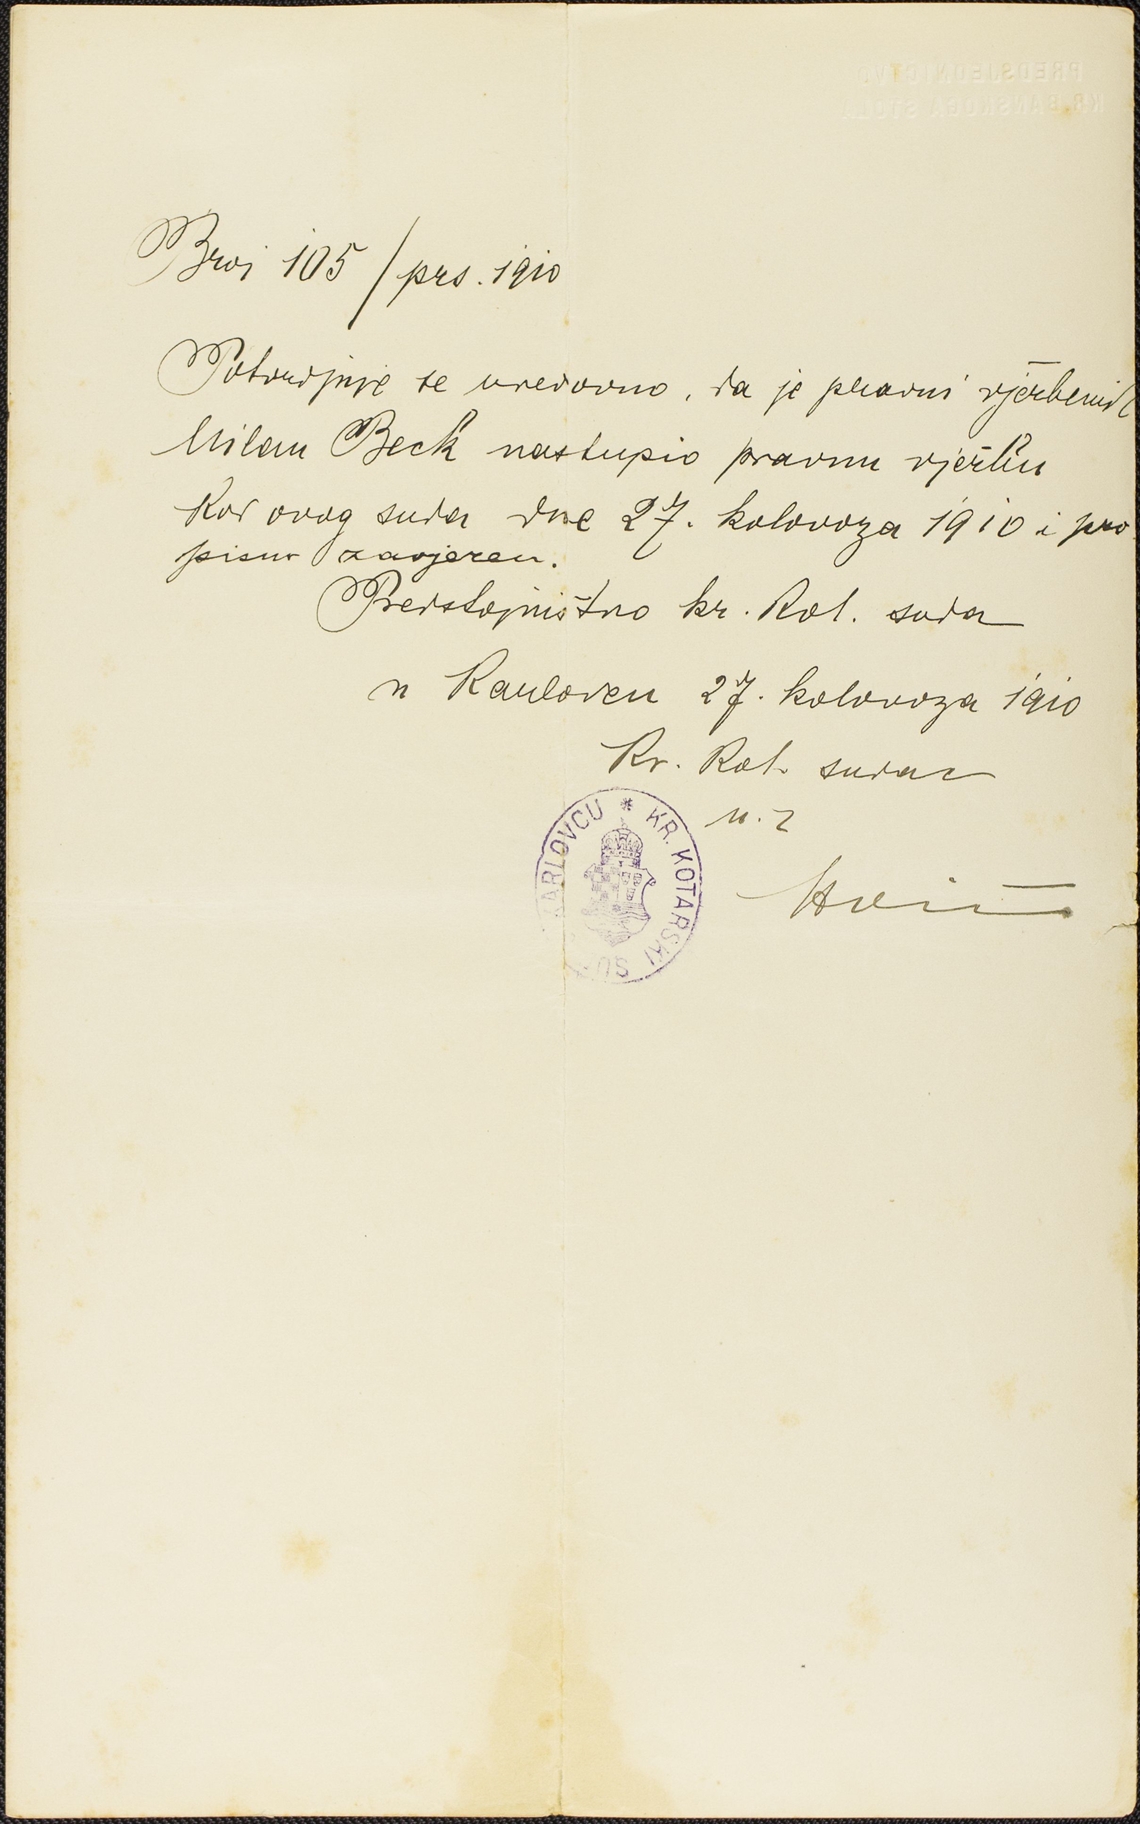 PREDSJEDNICTVO
KR. BANSKOGA STOLA
Broj 105 / prs. 1910
Potvrdjuje se uredovno, da je pravni vježbenik
Milan Beck nastupio pravnu vježbu
kod ovog suda dne 27. kolovoza 1910 i pro
pisno zavjeren.
Predstojništvo kr. kot. suda
u Karlovcu 27. kolovoza 1910
Kr. kot. sudac
u. z.
KR. KOTARSKI SUD KARLOVCU *